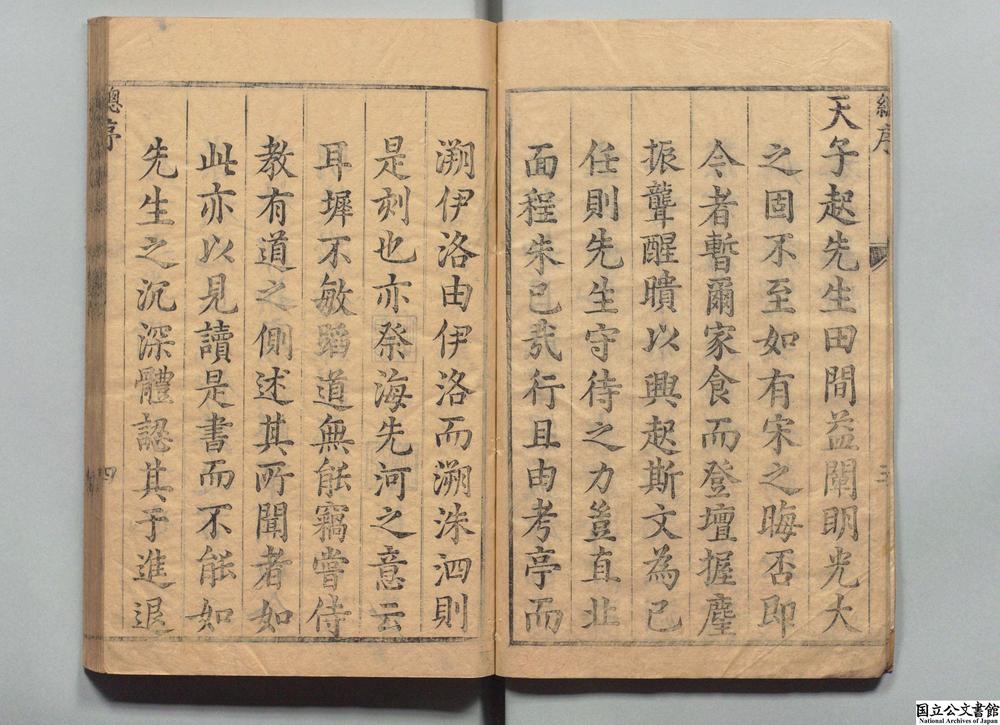 總序
三
天子起先生田間益闡明光大
之固不至如有宋之晦否即
今者暫爾家食而登壇握麈
振聾醒聵以興起斯文為己
任則先生守待之力豈直北
面程朱已㦲行且由考亭而
溯伊洛由伊洛而溯洙泗則
是刻也亦祭海先河之意云
耳墀不敏蹈道無能竊嘗侍
教有道之側述其所聞者如
此亦以見讀是書而不能如
先生之沉深體認其于進退
總序
四
国立公文書館
National Archives of Japan